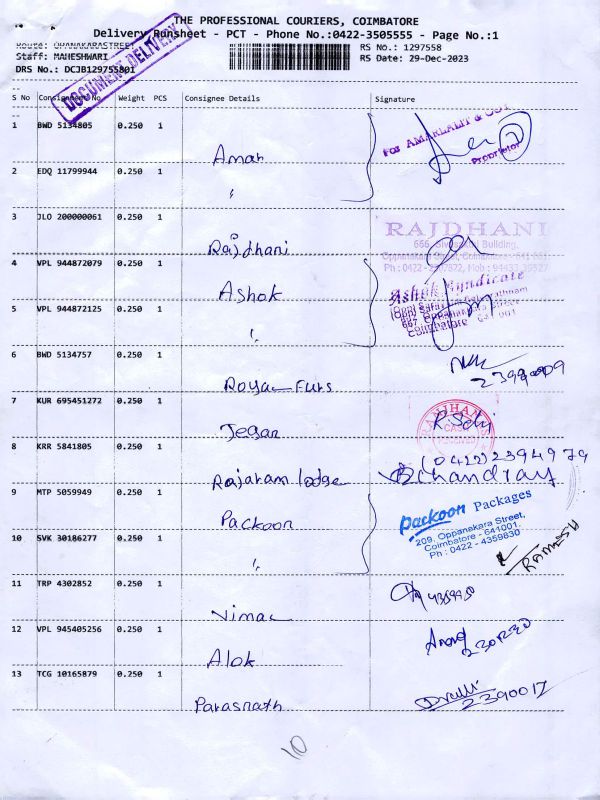 THE PROFESSIONAL COURIERS, COIMBATORE
Delivery Runsheet - PCT - Phone No.:0422-3505555 - Page No.:1
Route: OPANAKARASTREET
RS No.: 1297558
Staff: MAHESHWARI
RS Date: 29-Dec-2023
DRS No.: DCJB129755801
DOCUMENT DELIVERY
S No Consignment No Weight PCS Consignee Details Signature
1 BWD 5134805 0.250 1 Amar
For AMARLALIT & CO
Proprietor
2 EDQ 11799944 0.250 1 "
3 JLO 200000061 0.250 1 Rajdhani
RAJDHANI
666, Building,
Oppanakara Street, Coimbatore - 641 001
4 VPL 944872079 0.250 1 Ashok
Ashok Syndicate
667, Oppanakara Street
Coimbatore - 641 001
5 VPL 944872125 0.250 1 "
6 BWD 5134757 0.250 1 Royal Furs
7 KUR 695451272 0.250 1 Jegan
8 KRR 5841805 0.250 1 Rajaram lodge
(0422) 2394979
9 MTP 5059949 0.250 1 Packoon
Packoon Packages
209, Oppanakara Street,
Coimbatore - 641001.
Ph : 0422 - 4359830
10 SVK 30186277 0.250 1 "
RAMESH
11 TRP 4302852 0.250 1 Vimal
12 VPL 945405256 0.250 1 Alok
13 TCG 10165879 0.250 1 Parasnath
2390017
10